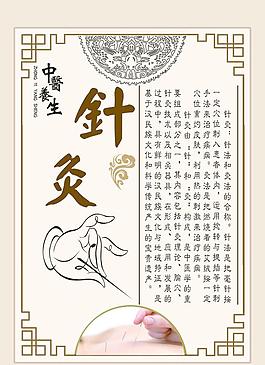 中醫養生
ZHONG YI YANG SHENG
針灸
针灸：针法和灸法的合称。针法是把毫针按
一定穴位刺入患者体内，运用捻转与提插等针刺
手法来治疗疾病。灸法是把燃烧着的艾绒按一定
穴位熏灼皮肤，利用热的刺激来治疗疾病。
针灸由：针：和：灸：构成，是中医学的重
要组成部分之一，其内容包括针灸理论、腧穴、
针灸技术以及相关器具，在形成、应用和发展的
过程中，具有鲜明的汉民族文化与地域特征，是
基于汉民族文化和科学传统产生的宝贵遗产。